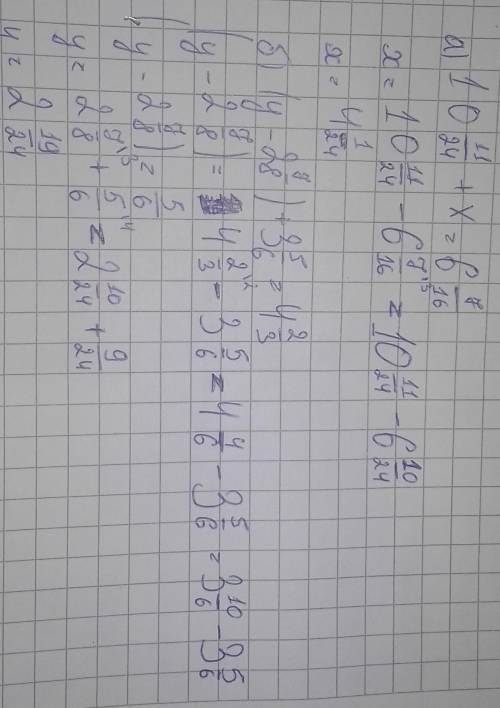 а) 10 11/24 + x = 6 7/16
x = 10 11/24 - 6 7/16 ^1,5 = 10 11/24 - 6 10/24
x = 4 1/24
б) (y - 2 7/8) + 3 5/6 = 4 2/3
(y - 2 7/8) = 4 2/3 - 3 5/6 = 4 4/6 - 3 5/6 = 3 10/6 - 3 5/6
(y - 2 7/8) = 5/6
y = 2 7/8 ^3 + 5/6 ^4 = 2 10/24 + 9/24
y = 2 19/24